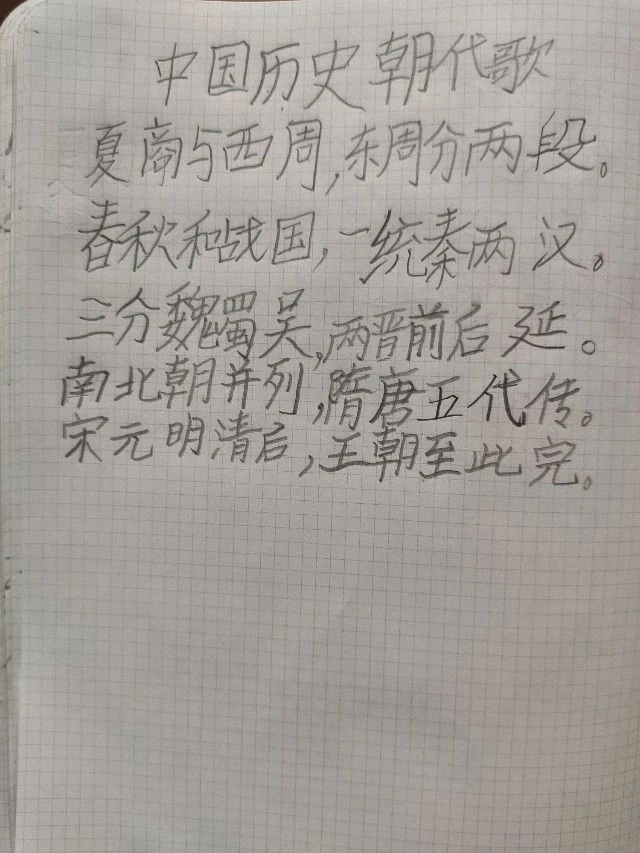 中国历史朝代歌
夏商与西周,东周分两段。
春秋和战国,一统秦两汉。
三分魏蜀吴,两晋前后延。
南北朝并列,隋唐五代传。
宋元明清后,王朝至此完。